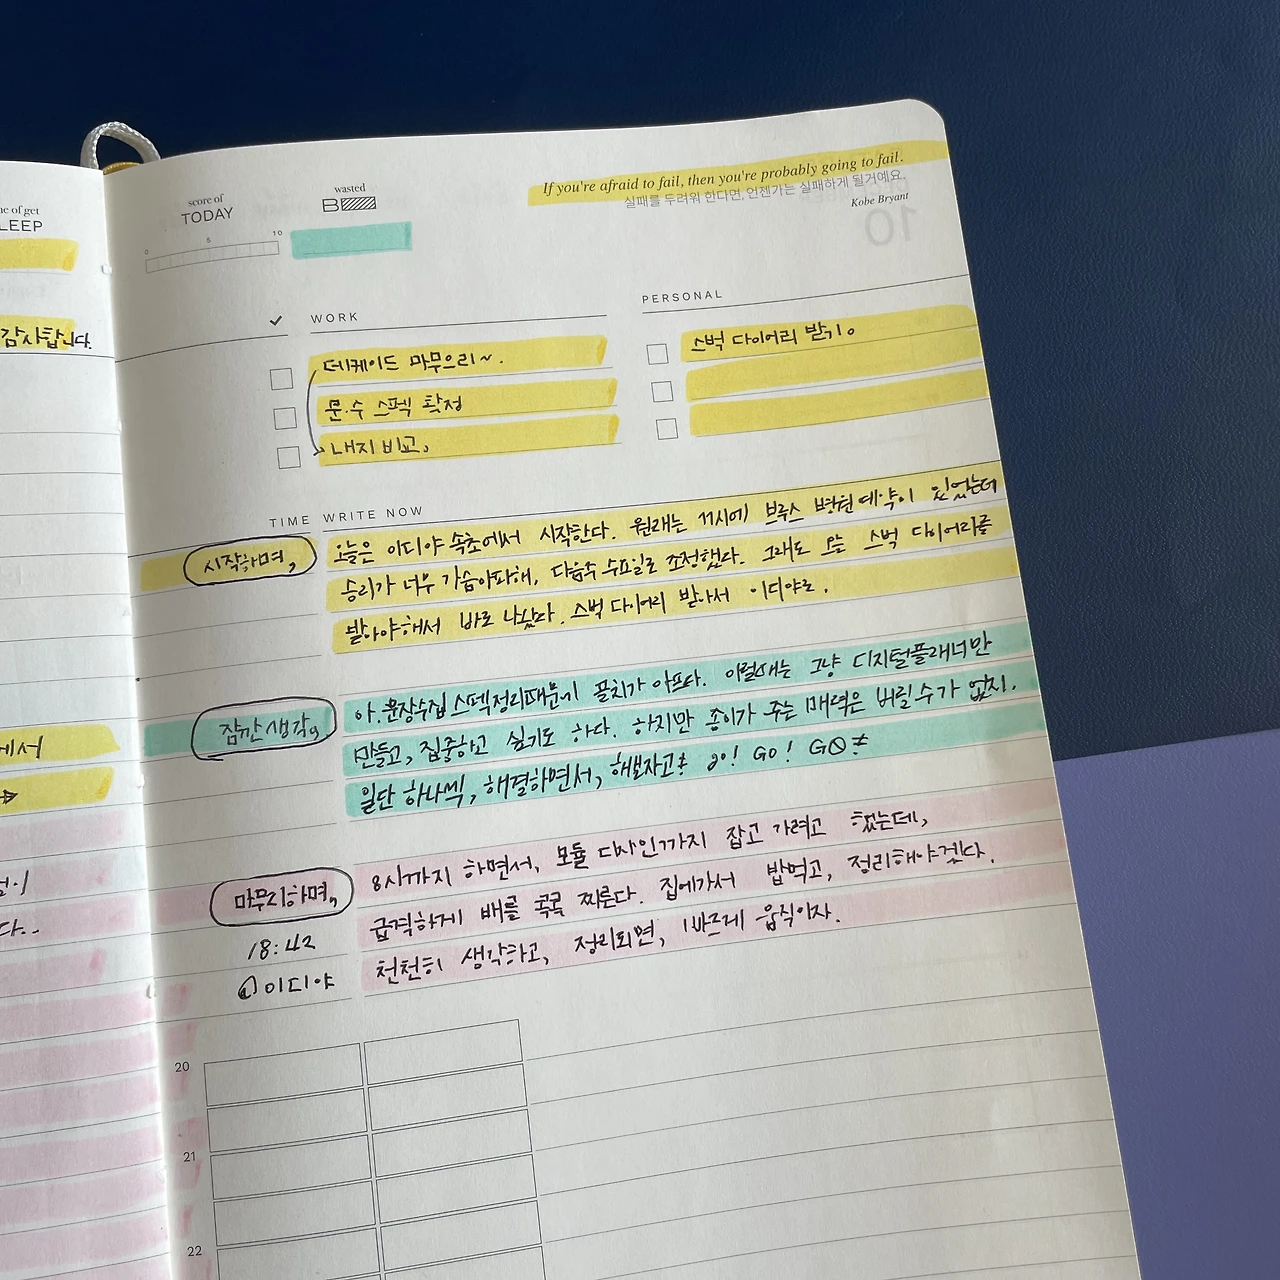 me of get
SLEEP
감사합니다.
에서
score of
TODAY
0 5 10
wasted
If you're afraid to fail, then you're probably going to fail.
실패를 두려워 한다면, 언젠가는 실패하게 될거예요.
Kobe Bryant
10
✓ WORK
데케이드 마무으리~.
문.수 스펙 확정
내지 비교,
PERSONAL
스벅 다이어리 받기.
TIME WRITE NOW
시작하며,
오늘은 이디야 속초에서 시작한다. 원래는 11시에 브루스 병원예약이 있었는데
승리가 너무 가슴아파해, 다음주 수요일로 조정했다. 그래도 오늘 스벅 다이어리를
받아야해서 바로 나섰다. 스벅 다이어리 받아서 이디야로.
잠깐생각,
아. 문장수집 스펙정리때문에 골치가 아프다. 이럴때는 그냥 디지털플래너만
만들고, 집중하고 싶기도 하다. 하지만 종이가 주는 매력은 버릴수가 없지.
일단 하나씩, 해결하면서, 해보자고! go! GO! GO
마무리하며,
18:42
이디야
8시까지 하면서, 모듈 디자인까지 잡고 가려고 했는데,
급격하게 배를 콕콕 찌른다. 집에가서 밥먹고, 정리해야겠다.
천천히 생각하고, 정리되면, 빠르게 움직이자.
20
21
22